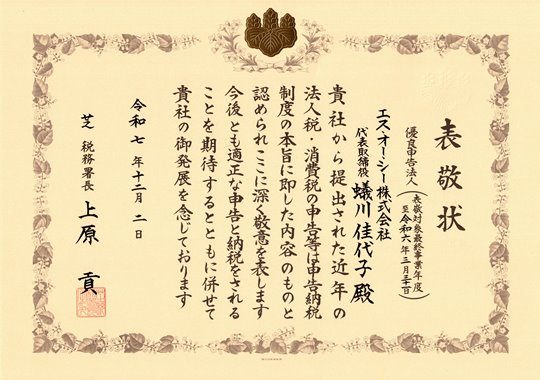 表敬状
優良申告法人
（表敬対象最終事業年度
至令和六年三月三十一日）
エス・オーシー株式会社
代表取締役 蟻川佳代子殿
貴社から提出された近年の
法人税・消費税の申告等は申告納税
制度の本旨に即した内容のものと
認められここに深く敬意を表します
今後とも適正な申告と納税をされる
ことを期待するとともに併せて
貴社の御発展を念じております
令和七年十二月二日
芝税務署長 上原貢